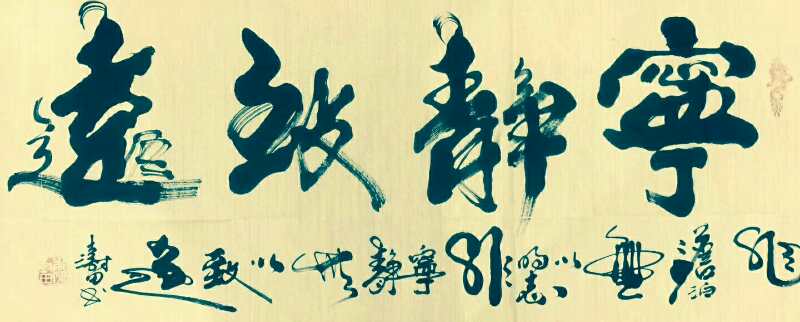 寧靜致遠
非澹泊無以明志非寧靜無以致遠